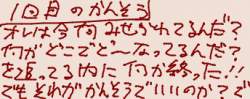 1回目のかんそう
オレは今何みせられてるんだ?
何がどこでど〜なってるんだ?
を追ってる内に何か終った!!
でもそれがかんそうでいいのか?で